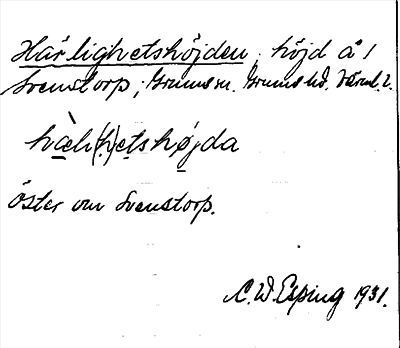 Härlighetshöjden, höjd å /
Svenstorp; Grums sn. Grums hd. Värml. l.
hæ̀li(h)etshøjda
öster om Svenstorp.
C. W. Esping 1931.